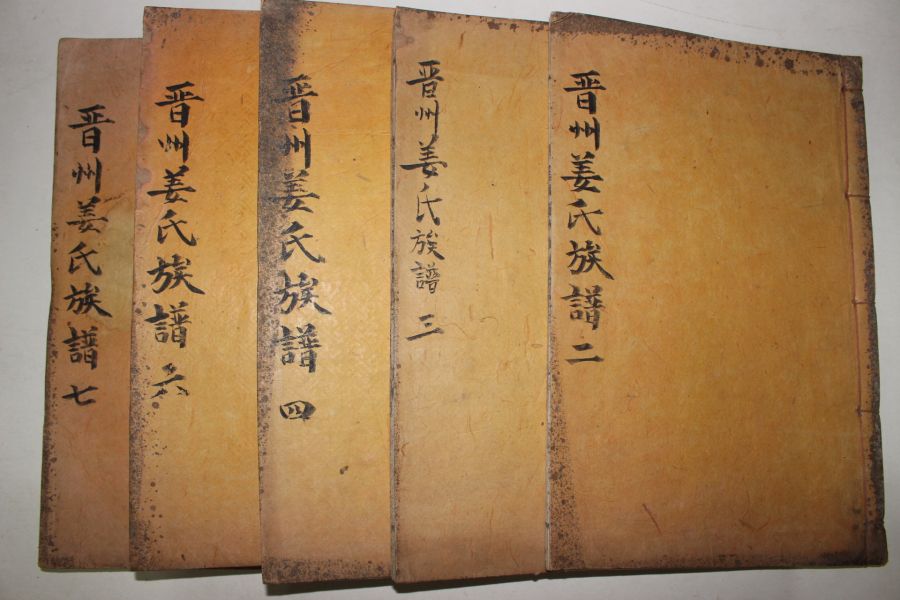 晉州姜氏族譜 二
晉州姜氏族譜 三
晉州姜氏族譜 四
晉州姜氏族譜 六
晉州姜氏族譜 七